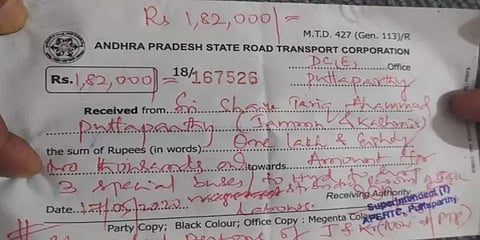 Rs 1,82,000/=
M.T.D. 427 (Gen. 113)/R
ANDHRA PRADESH STATE ROAD TRANSPORT CORPORATION
DC(E), Office
Rs. 1,82,000/= 18/167526 Puttaparthy
Received from Sri Tariq Ahammad
Puttaparthy (Jammu & Kashmir)
the sum of Rupees (in words) One lakh & Eighty
two thousands only towards Amount for
3 special buses to
Receiving Authority
Superintendent (T)
Date 17/05/2020 APSRTC, Puttaparthy.
Party Copy; Black Colour; Office Copy : Megenta Colour
of J & K